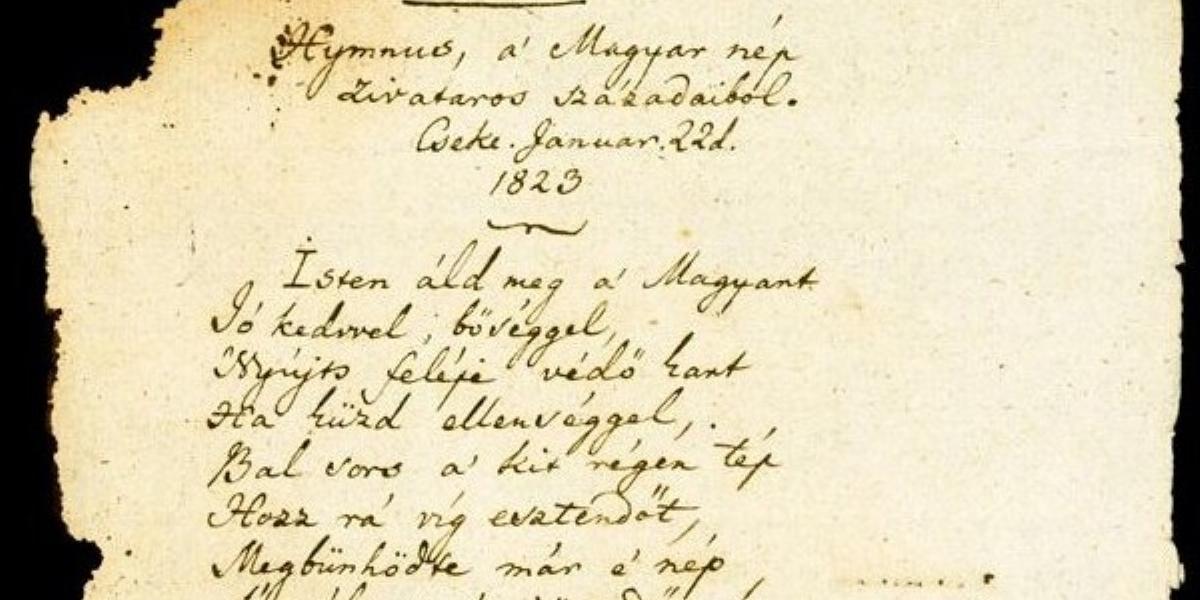 Hymnus, a' Magyar nép
zivataros századaiból.
Cseke. Januar. 22d.
1823
Isten áld meg a' Magyart
Jó kedvvel, bőséggel,
Nyújts feléje védő kart
Ha küzd ellenséggel,
Bal sors a' kit régen tép
Hozz rá víg esztendőt,
Megbünhödte már é nép